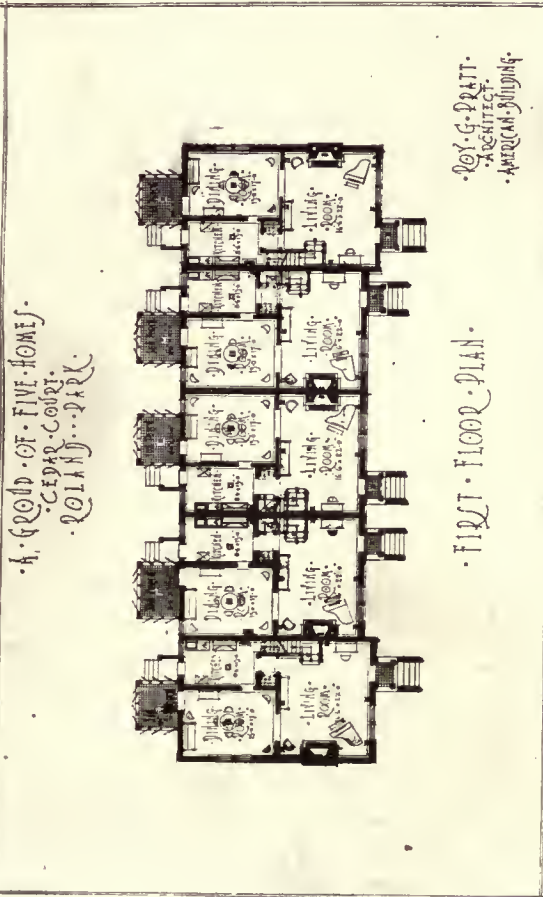 ·A·GROUP·OF·FIVE·HOMES·
·CEDAR·COURT·
·ROLAND··PARK·
·DINING·
ROOM·
·KITCHEN·
·LIVING·
ROOM·
16·6×22·0
·KITCHEN·
·DINING·
ROOM·
·LIVING·
ROOM·
16·6×22·0
·DINING·
ROOM·
·KITCHEN·
·LIVING·
ROOM·
16·6×22·0
·KITCHEN·
·DINING·
ROOM·
·LIVING·
ROOM·
·KITCHEN·
·DINING·
ROOM·
·LIVING·
ROOM·
·FIRST·FLOOR·PLAN·
·ROY·G·PRATT·
·ARCHITECT·
·AMERICAN·BUILDING·